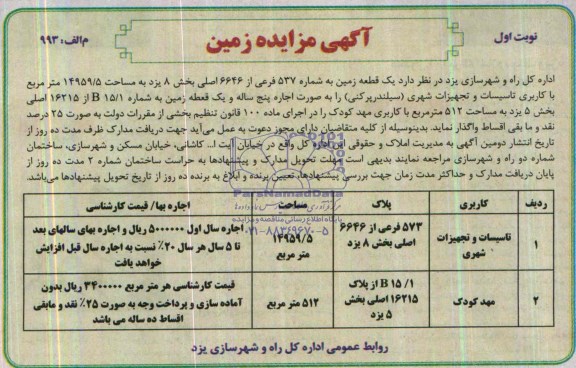 نوبت اول
آگهی مزایده زمین
م‌الف: ۹۹۳
اداره کل راه و شهرسازی یزد در نظر دارد یک قطعه زمین به شماره ۵۳۷ فرعی از ۶۶۴۶ اصلی بخش ۸ یزد به مساحت ۱۴۹۵۹/۵ متر مربع
با کاربری تاسیسات و تجهیزات شهری (سیلندرپرکنی) را به صورت اجاره پنج ساله و یک قطعه زمین به شماره B ۱۵/۱ از ۱۶۲۱۵ اصلی
بخش ۵ یزد به مساحت ۵۱۲ مترمربع با کاربری مهد کودک را در اجرای ماده ۱۰۰ قانون تنظیم بخشی از مقررات دولت به صورت ۲۵ درصد
نقد و ما بقی اقساط واگذار نماید. بدینوسیله از کلیه متقاضیان دارای مجوز دعوت به عمل می‌آید جهت دریافت مدارک ظرف مدت ده روز از
تاریخ انتشار دومین آگهی به مدیریت املاک و حقوقی این اداره کل واقع در خیابان آیت ا... کاشانی، خیابان مسکن و شهرسازی، ساختمان
شماره دو راه و شهرسازی مراجعه نمایند بدیهی است مهلت تحویل مدارک و پیشنهادها به حراست ساختمان شماره ۲ مدت ده روز از
پایان دریافت مدارک و حداکثر مدت زمان جهت بررسی پیشنهادها، تعیین برنده و ابلاغ به برنده ده روز از تاریخ تحویل پیشنهادها می‌باشد.
ParsNamadData
پایگاه اطلاع رسانی مناقصه و مزایده
۰۲۱-۸۸۳۴۹۶۷۰-۵
ردیف کاربری پلاک مساحت اجاره بها/ قیمت کارشناسی
۱ تاسیسات و تجهیزات شهری ۵۷۳ فرعی از ۶۶۴۶ اصلی بخش ۸ یزد ۱۴۹۵۹/۵ متر مربع اجاره سال اول ۵۰۰۰۰۰۰ ریال و اجاره بهای سالهای بعد تا ۵ سال هر سال ۲۰٪ نسبت به اجاره سال قبل افزایش خواهد یافت
۲ مهد کودک B ۱۵ /۱ از پلاک ۱۶۲۱۵ اصلی بخش ۵ یزد ۵۱۲ متر مربع قیمت کارشناسی هر متر مربع ۳۴۰۰۰۰۰ ریال بدون آماده سازی و پرداخت وجه به صورت ۲۵٪ نقد و مابقی اقساط ده ساله می باشد
روابط عمومی اداره کل راه و شهرسازی یزد